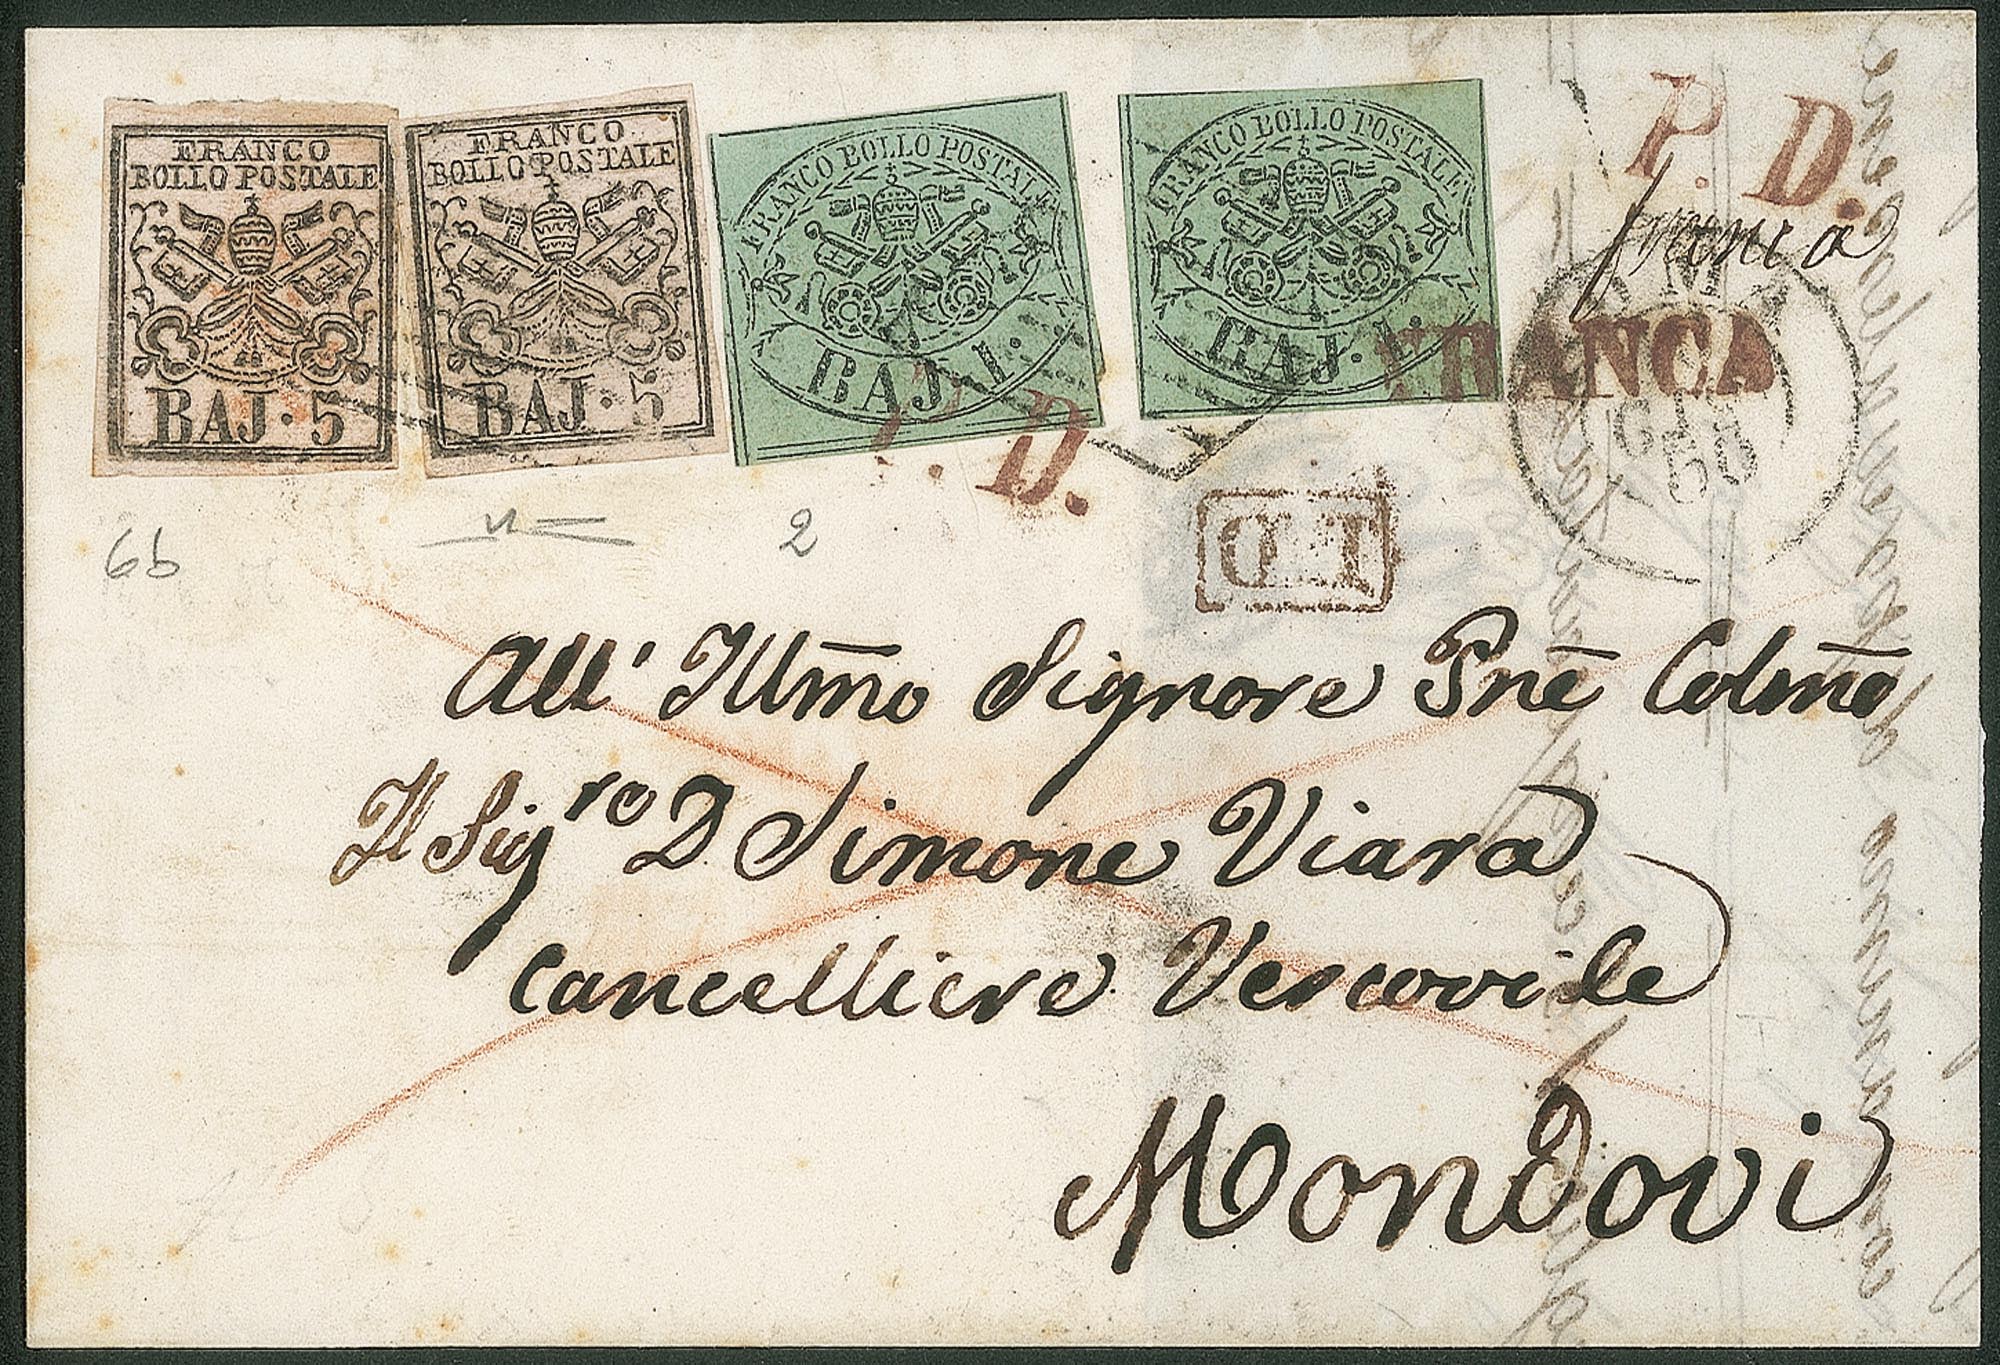 FRANCO
BOLLO POSTALE
BAJ·5
FRANCO
BOLLO POSTALE
BAJ·5
FRANCO BOLLO POSTALE
BAJ·1·
FRANCO BOLLO POSTALE
BAJ·1·
P. D.
franca
FRANCA
P. D.
PD
6b
2
All' Illm̄o Signore Pnē Colm̄o
Il Sigro D Simone Viara
Cancelliere Vescovile
Mondovi